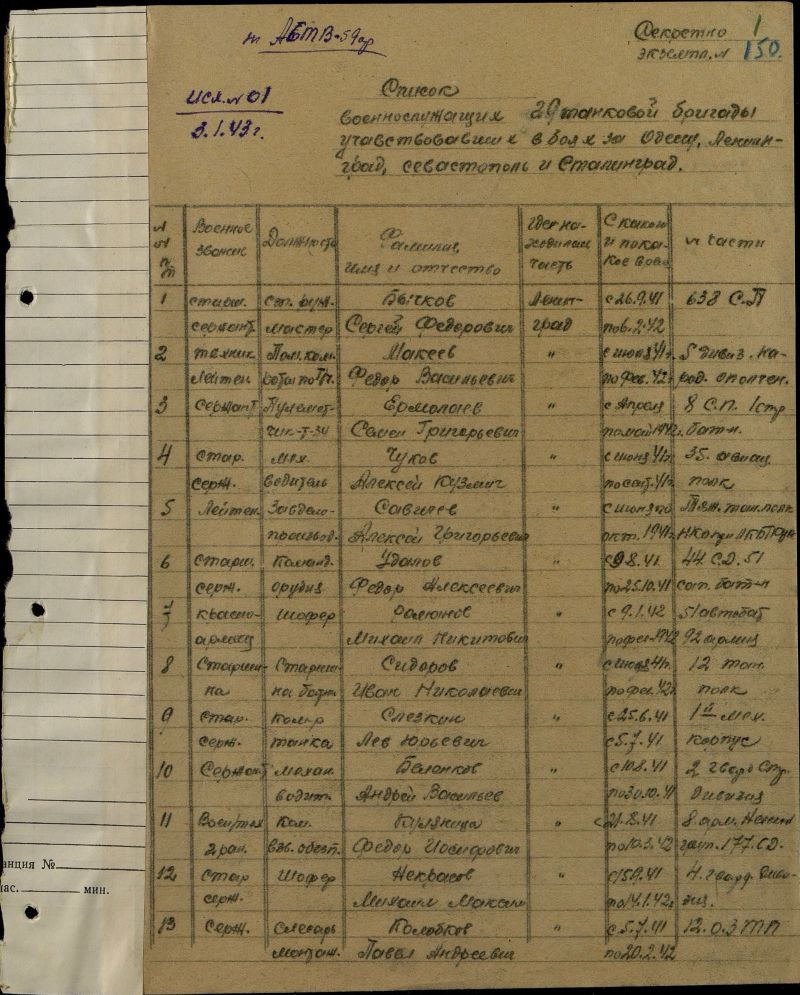 АБТВ-59ар
Секретно 1
экземпл. N 150.
Исх. N 01
3.1.43г.
Список
военнослужащих 29 танковой бригады
учавствовавших в боях за Одессу, Ленин-
град, Севастополь и Сталинград.
N N п/п Военное звание Должность Фамилия, имя и отчество Где находилась часть С какого и по какое время N части
1 старш. ст. оруж. Бычков Ленин- с 26.9.41 638 С.П
сержант мастер Сергей Федорович град по 6.2.42
2 техник Пом. ком. Макеев " с июля 41г. 5 дивиз. на-
Лейтен. роты по т/ч. Федор Васильевич по фев. 42г. род. ополчен.
3 Сержант Пулемет- Ермолаев " с Апреля 8 С.П. 1 стр
чик-т-34 Семен Григорьевич по май 1942г. бат-н.
4 Стар. мех. Чуков " с июня 41г. 35. авиац.
серж. водитель Алексей Кузмич по сент. 41г. полк
5 Лейтен. Завдело- Савичев " с июня по Тяж. тан. полк
производ. Алексей Григорьевич окт. 1941г.
6 Старш. Команд. Удалов " с 9.8.41 44 С.Д. 51
серж. орудия Федор Алексеевич по 25.10.41 сап. бат-н
7 красно- шофер " с 9.1.42 51 автобат
армеец Михаил Никитович по фев. 1942 92 армии
8 Старши- Старши- Сидоров " с июля 41г. 12 тан.
на на батн. Иван Николаевич по фев. 42г. полк
9 Стар. Комтр Слезкин " с 25.6.41 1й мех.
серж. танка Лев Юрьевич с 5.7.41 корпус
10 Сержант механ. Беленков " с 10.8.41 2 гвард Стр.
водит. Андрей Васильев по 30.10.41 Дивизия
11 Воентех Ком. " с 21.8.41 8 арм.
2 ран. взв. обесп. Федор Иосифович по 10.3.42 177. СД.
12 Стар Шофер Некрасов " с 15.9.41 4. гвард. Диви-
серж. Михаил Максим по 14.1.42г зия.
13 Серж. Слесарь Колобков " с 5.7.41 12. О.З ТП
монтаж. Павел Андреевич по 20.2.42
анция №
час. мин.